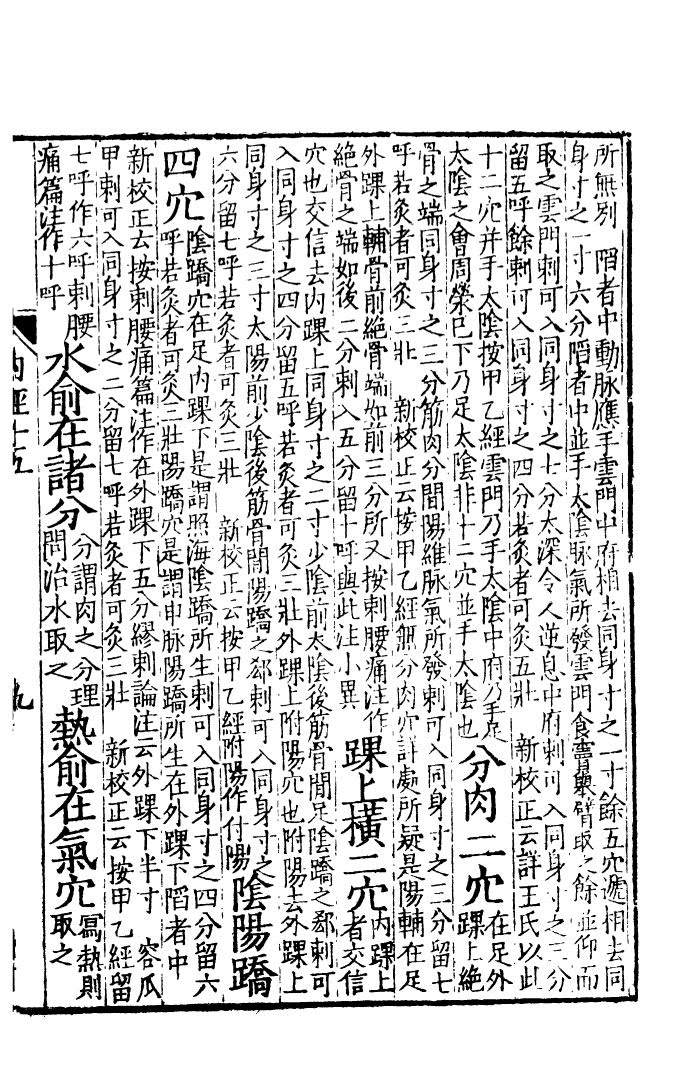 所無別 䧟者中動脉應手雲門中府相去同身寸之一寸餘五穴遞相去同
身寸之一寸六分䧟者中並手太陰脉氣所發雲門食竇舉臂取之餘並仰而
取之雲門刺可入同身寸之七分太深令人逆息中府刺可入同身寸之三分
留五呼餘刺可入同身寸之四分若灸者可灸五壯 新校正云詳王氏以此
十二穴并手太陰按甲乙經雲門乃手太陰中府乃手足
太陰之會周榮巳下乃足太陰非十二穴並手太陰也
分肉二穴
在足外
踝上絶
骨之端同身寸之三分筋肉分間陽維脉氣所發刺可入同身寸之三分留七
呼若灸者可灸三壯 新校正云按甲乙經無分肉穴詳處所疑是陽輔在足
外踝上輔骨前絶骨端如前三分所又按刺腰痛注作
絶骨之端如後二分刺入五分留十呼與此注小異
踝上橫二穴
内踝上
者交信
穴也交信去内踝上同身寸之二寸少陰前太陰後筋骨間足陰蹻之郄刺可
入同身寸之四分留五呼若灸者可灸三壯外踝上附陽穴也附陽去外踝上
同身寸之三寸太陽前少陰後筋骨間陽蹻之郄刺可入同身寸之
六分留七呼若灸者可灸三壯 新校正云按甲乙經附陽作付陽
陰陽蹻
四穴
陰蹻穴在足内踝下是謂照海陰蹻所生刺可入同身寸之四分留六
呼若灸者可灸三壯陽蹻穴是謂申脉陽蹻所生在外踝下䧟者中
新校正云按刺腰痛篇注作在外踝下五分繆刺論注云外踝下半寸 容爪
甲刺可入同身寸之二分留七呼若灸者可灸三壯 新校正云按甲乙經留
七呼作六呼刺腰
痛篇注作十呼
水俞在諸分
分謂肉之分理
間治水取之
熱俞在氣穴
寫熱則
取之
内經十五
九